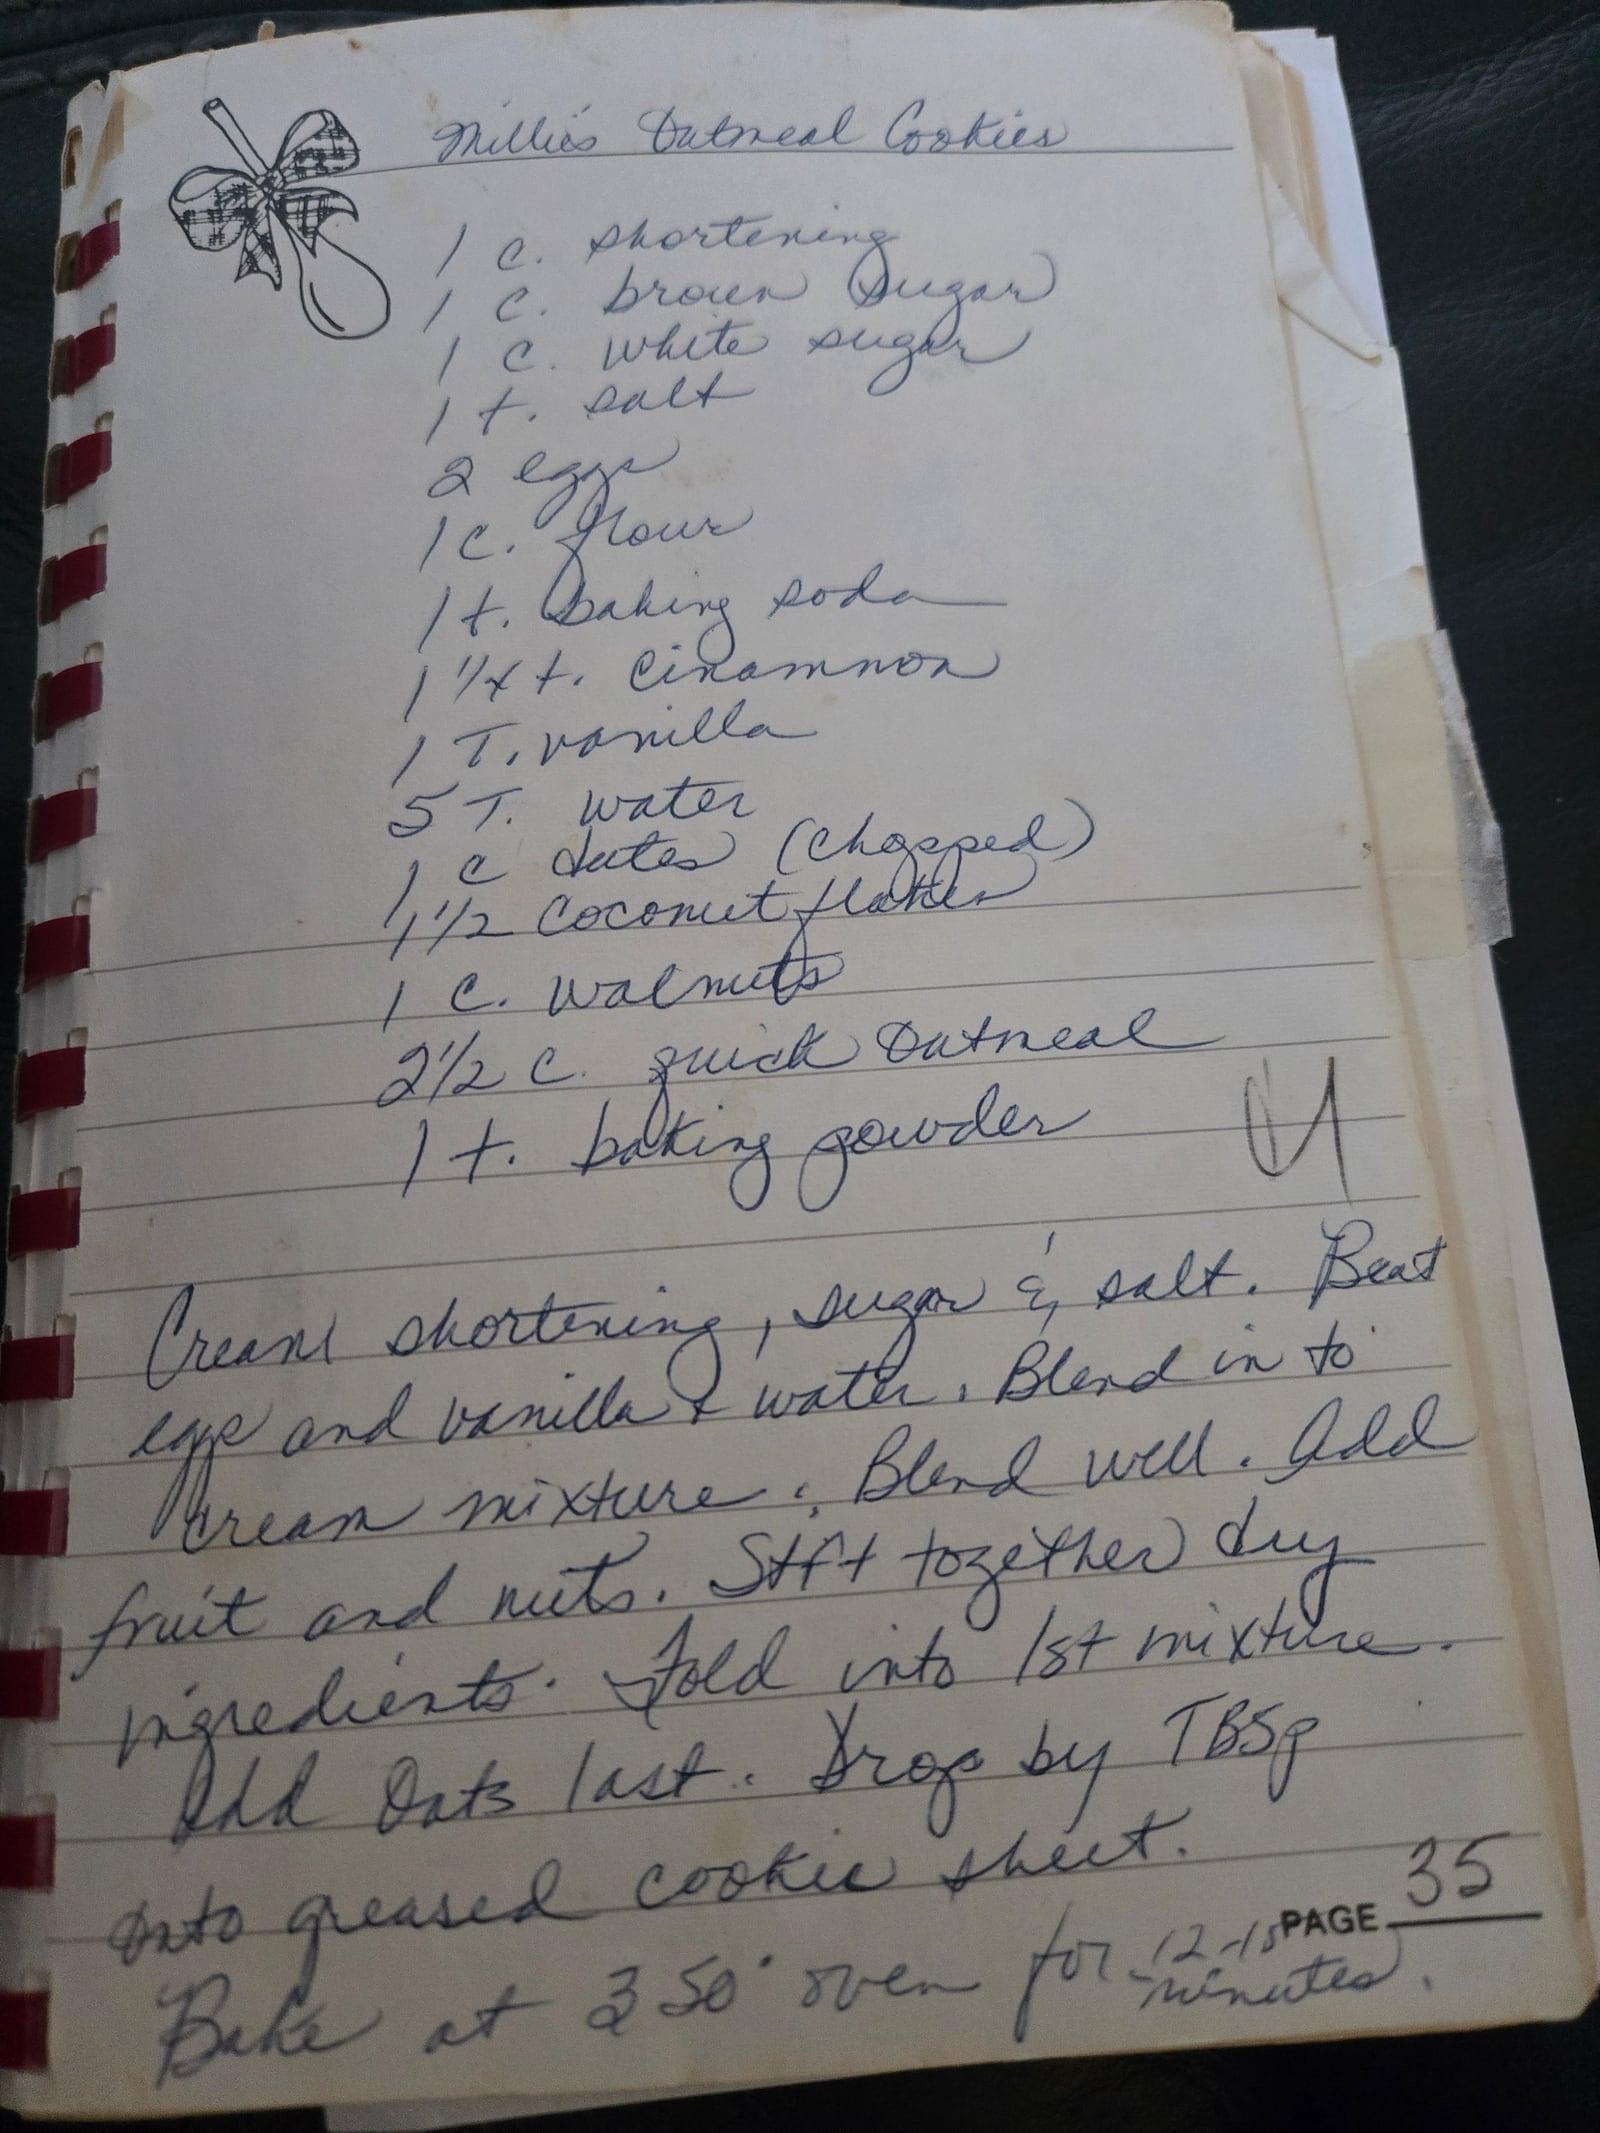 Millie's Oatmeal Cookies
1 c. shortening
1 c. brown sugar
1 c. white sugar
1 t. salt
2 eggs
1 c. flour
1 t. baking soda
1 1/4 t. cinamnon
1 T. vanilla
5 T. water
1 c dates (chopped)
1 1/2 coconut flakes
1 c. walnuts
2 1/2 c. quick oatmeal
1 t. baking powder
Cream shortening, sugar & salt. Beat
eggs and vanilla & water. Blend in to
cream mixture. Blend well. Add
fruit and nuts. Sift together dry
ingredients. Fold into 1st mixture.
Add Oats last. Drop by TBSp
onto greased cookie sheet.
PAGE 35
Bake at 350° oven for 12-15
minutes.